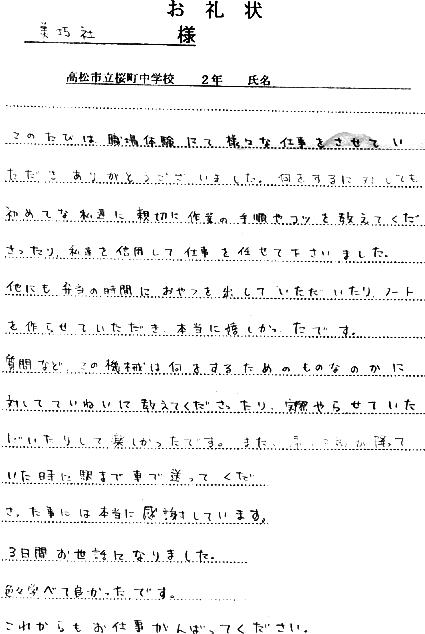 お礼状
美巧社 様
高松市立桜町中学校 2年 氏名
このたびは職場体験にて様々な仕事をさせてい
ただきありがとうございました。何をするに対しても
初めてな私達に親切に作業の手順やコツを教えてくだ
さったり、私達を信用して仕事を任せて下さいました。
他にもお弁当の時間におやつを出していただいたり、ノート
を作らせていただき、本当に嬉しかったです。
質問など、この機械は何をするためのものなのかに
対してていねいに教えてくださったり、実際やらせていた
だいたりして楽しかったです。また、 が降って
いた時に駅まで車で送ってくだ
さった事には本当に感謝しています。
3日間お世話になりました。
色々学べて良かったです。
これからもお仕事がんばってください。